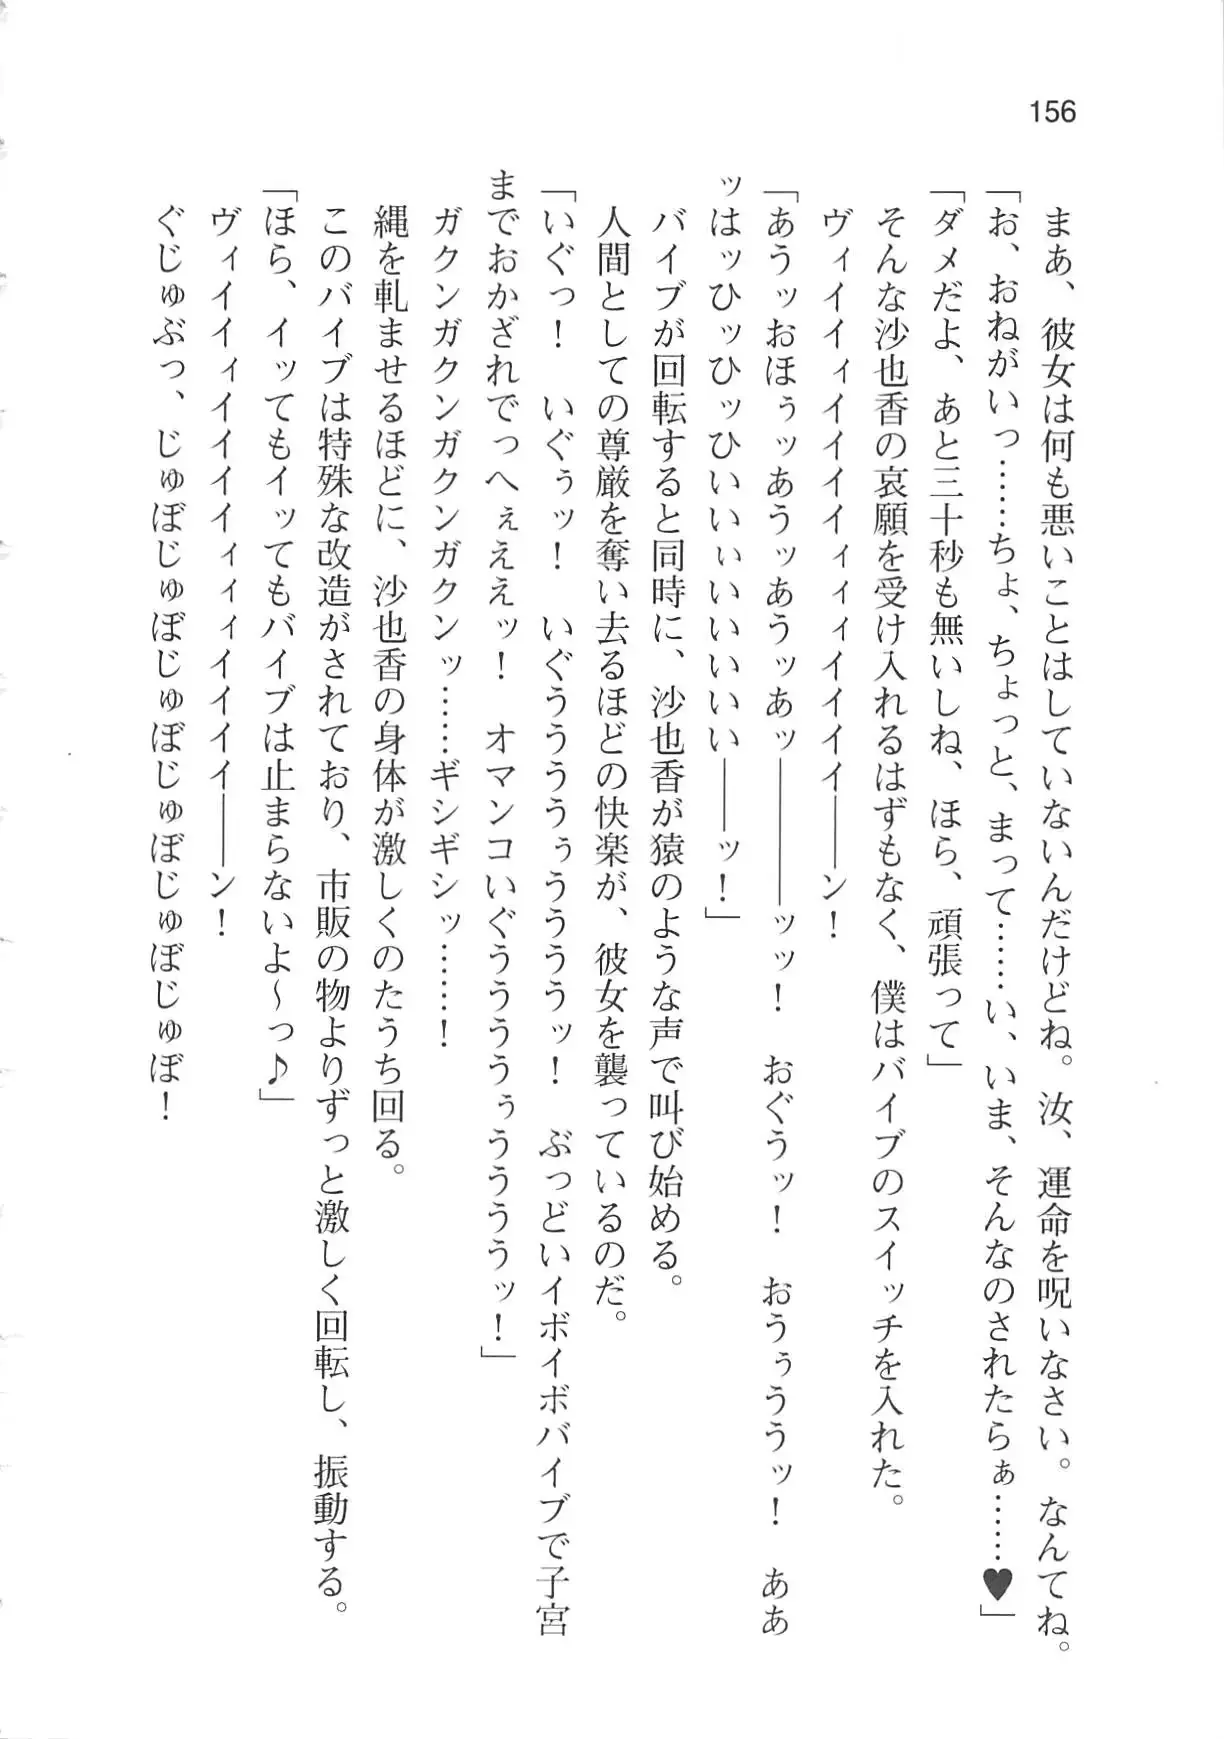 156
まあ、彼女は何も悪いことはしていないんだけどね。汝、運命を呪いなさい。なんてね。
「お、おねがいっ……ちょ、ちょっと、まって……い、いま、そんなのされたらぁ……♥」
「ダメだよ、あと三十秒も無いしね、ほら、頑張って」
そんな沙也香の哀願を受け入れるはずもなく、僕はバイブのスイッチを入れた。
ヴィイイィイイイイィィィイイイイ――ン！
「あうッおほぅッあうッあうッあッ――――ッッ！　おぐうッ！　おうぅううッ！　ああ
ッはッひッひッひいいぃいいいいいい――ッ！」
バイブが回転すると同時に、沙也香が猿のような声で叫び始める。
人間としての尊厳を奪い去るほどの快楽が、彼女を襲っているのだ。
「いぐっ！　いぐぅッ！　いぐうううぅううううッ！　ぶっどいイボイボバイブで子宮
までおかざれでっへぇええッ！　オマンコいぐうううぅううううッ！」
ガクンガクンガクンガクンッ……ギシギシッ……！
縄を軋ませるほどに、沙也香の身体が激しくのたうち回る。
このバイブは特殊な改造がされており、市販の物よりずっと激しく回転し、振動する。
「ほら、イッてもイッてもバイブは止まらないよ～っ♪」
ヴィイイィイイイイィィィイイイイ――ン！
ぐじゅぶっ、じゅぼじゅぼじゅぼじゅぼじゅぼじゅぼ！